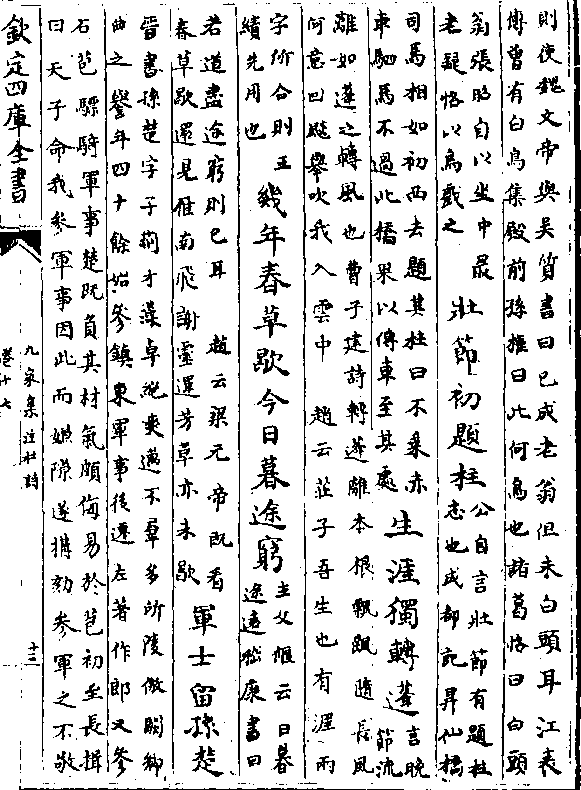 則使魏文帝與吳質書曰已成老翁但未白頭耳江表
傳曾有白鳥集殿前孫權曰此何鳥也諸葛恪曰白頭
翁張昭自以坐中最
老疑恪以鳥戲之
壯節初題柱
公自言壯節有題柱
志也成都記昇仙橋
司馬相如初西去題其柱曰不乘赤
車駟馬不過此橋果以傳車至其處
生涯獨轉蓬
言晚
節流
離如蓬之轉風也曹子建詩轉蓬離本根飄颻隨長風
何意回飇舉吹我入雲中 趙云莊子吾生也有涯而
字所合則王
績先用也
幾年春草歇今日暮途窮
主父偃云日暮
途遠嵇康書曰
若道盡途窮則已耳 趙云梁元帝既看
春草歇還見雁南飛謝靈運芳草亦未歇
軍士留孫楚
晉書孫楚字子荊才藻卓絶爽邁不羣多所陵傲闕鄉
曲之譽年四十餘始參鎮東軍事後遷左著作郎又參
石苞驃騎軍事楚既負其材氣頗侮易於苞初至長揖
曰天子命我參軍事因此而嫌隙遂搆劾參軍之不敬
欽定四庫全書
九家集注杜詩
卷十七
十三